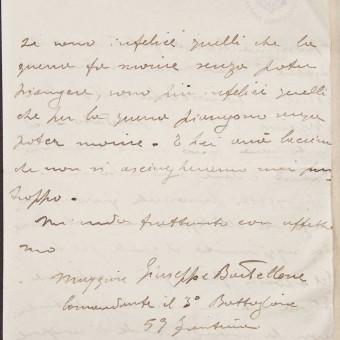 se sono infelici quelli che la
guerra fa morire senza poter
piangere, sono più infelici quelli
che per la guerra piangono senza
poter morire. E lei avrà lacrime
che non si asciugheranno mai pur
troppo.
Mi creda frattanto con affetto
suo
Maggiore Giuseppe
Comandante il 3° Battaglione
59 Fanteria